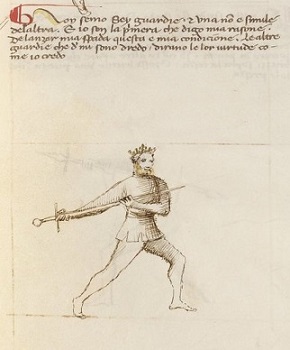 Noy semo Sey guardie & una no e simile
de laltra. E io son la primera che digo mia rasone.
De lanzar mia spada questa e mia condicione. Le altre
guardie che d mi sono dredo dirano le lor virtude co-
me io credo